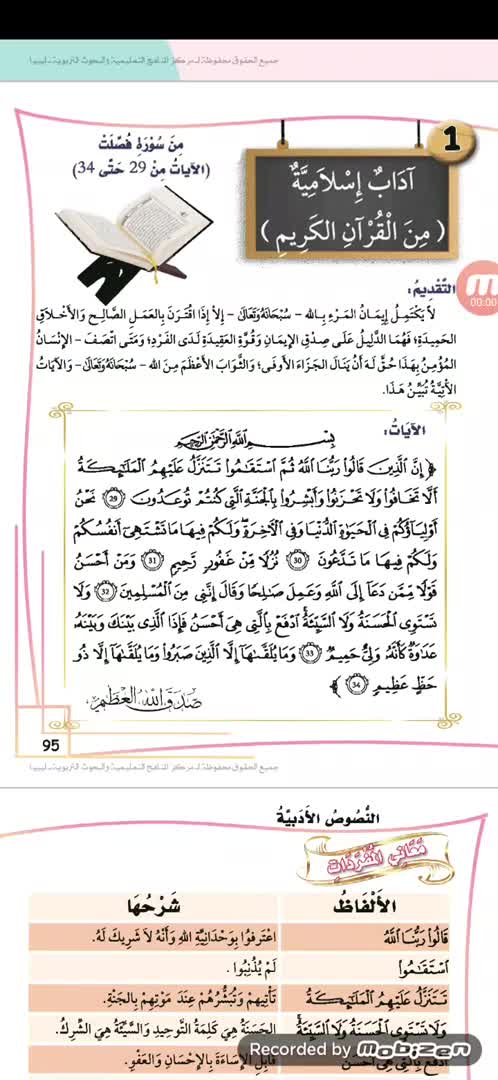 جميع الحقوق محفوظة لـ مركز المناهج التعليمية والبحوث التربوية - ليبيا
1
آدَابٌ إِسْلَامِيَّةٌ
( مِنَ الْقُرْآنِ الكَرِيمِ )
مِنَ سُورَةِ فُصِّلَتْ
(الآيَاتُ مِنْ 29 حَتَّى 34)
00:00
التَّقْدِيمُ:
لاَ يَكْتَمِلُ إِيمَانُ المَرْءِ بِالله - سُبْحَانَهُ وَتَعَالَى - إِلاَّ إِذَا اقْتَرَنَ بِالعَمَلِ الصَّالِحِ وَالأَخْلَاقِ
الحَمِيدَةِ؛ فَهُمَا الدَّلِيلُ عَلَى صِدْقِ الإِيمَانِ وَقُوَّةِ العَقِيدَةِ لَدَى الفَرْدِ؛ وَمَتَى اتَّصَفَ - الإِنْسَانُ
المُؤْمِنُ بِهَذَا حُقَّ لَهُ أَنْ يَنَالَ الجَزَاءَ الأَوفَى؛ وَالثَّوَابَ الأَعْظَمَ مِنَ الله - سُبْحَانَهُ وَتَعَالَى - وَالآيَاتُ
الآتِيَةُ تُبَيِّنُ هَذَا.
الآيَاتُ:
بِسْمِ اللَّهِ الرَّحْمَنِ الرَّحِيمِ
﴿ إِنَّ الَّذِينَ قَالُوا رَبُّنَا اللَّهُ ثُمَّ اسْتَقَامُوا تَتَنَزَّلُ عَلَيْهِمُ الْمَلَائِكَةُ
أَلَّا تَخَافُوا وَلَا تَحْزَنُوا وَأَبْشِرُوا بِالْجَنَّةِ الَّتِي كُنتُمْ تُوعَدُونَ (29) نَحْنُ
أَوْلِيَاؤُكُمْ فِي الْحَيَاةِ الدُّنْيَا وَفِي الْآخِرَةِ وَلَكُمْ فِيهَا مَا تَشْتَهِي أَنفُسُكُمْ
وَلَكُمْ فِيهَا مَا تَدَّعُونَ (30) نُزُلًا مِّنْ غَفُورٍ رَّحِيمٍ (31) وَمَنْ أَحْسَنُ
قَوْلًا مِّمَّن دَعَا إِلَى اللَّهِ وَعَمِلَ صَالِحًا وَقَالَ إِنَّنِي مِنَ الْمُسْلِمِينَ (32) وَلَا
تَسْتَوِي الْحَسَنَةُ وَلَا السَّيِّئَةُ ادْفَعْ بِالَّتِي هِيَ أَحْسَنُ فَإِذَا الَّذِي بَيْنَكَ وَبَيْنَهُ
عَدَاوَةٌ كَأَنَّهُ وَلِيٌّ حَمِيمٌ (33) وَمَا يُلَقَّاهَا إِلَّا الَّذِينَ صَبَرُوا وَمَا يُلَقَّاهَا إِلَّا ذُو
حَظٍّ عَظِيمٍ (34) ﴾
صَدَقَ اللهُ العَظِيمُ
95
جميع الحقوق محفوظة لـ مركز المناهج التعليمية والبحوث التربوية - ليبيا
النُّصُوصُ الأَدَبيَّةُ
مَعَانِي المُفْرَدَاتِ
الأَلْفَاظُ شَرْحُهَا
قَالُوا رَبُّنَا اللَّهُ اعْتَرَفُوا بِوَحْدَانِيَّةِ اللهِ وَأَنَّهُ لاَ شَرِيكَ لَهُ.
اسْتَقَامُوا لَمْ يُذْنِبُوا.
تَتَنَزَّلُ عَلَيْهِمُ الْمَلَائِكَةُ تَأْتِيهِمْ وَتُبَشِّرُهُمْ عِنْدَ مَوْتِهِمْ بِالجَنَّةِ.
وَلَا تَسْتَوِي الْحَسَنَةُ وَلَا السَّيِّئَةُ الحَسَنَةُ هِيَ كَلِمَةُ التَّوحِيدِ وَالسَّيِّئَةُ هِيَ الشِّرْكُ.
ادْفَعْ بِالَّتِي هِيَ أَحْسَنُ قَابِلِ الإِسَاءَةَ بِالإِحْسَانِ وَالعَفْوِ.
Recorded by mobizen